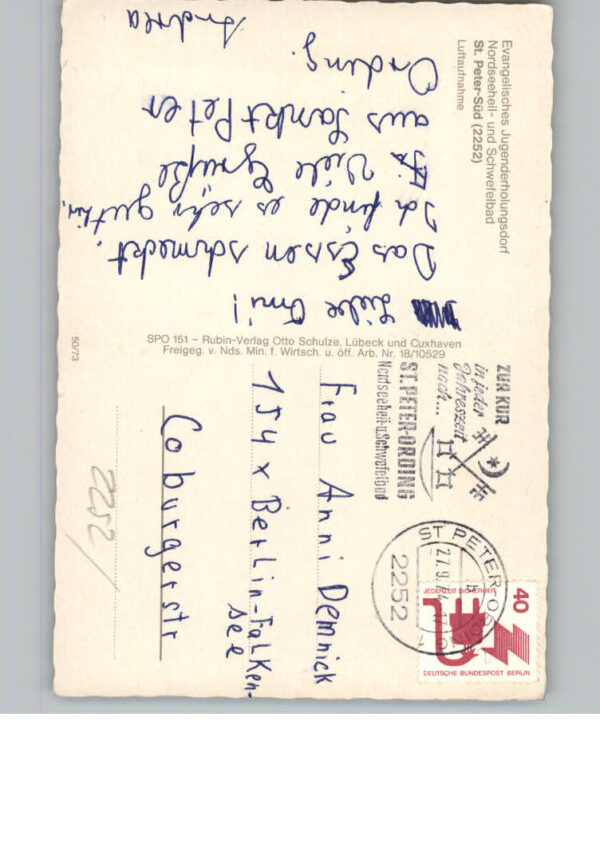 Evangelisches Jugenderholungsdorf
Nordseeheil- und Schwefelbad
St. Peter-Süd (2252)
Luftaufnahme
Liebe Omi!
Das Essen schmeckt.
Ich finde es sehr gut hir.
Viele Grüße
aus Sankt Peter
Ording.
Andrea
SPO 151 – Rubin-Verlag Otto Schulze, Lübeck und Cuxhaven
Freigeg. v. Nds. Min. f. Wirtsch. u. öff. Arb. Nr. 18/10529
50/73
ZUR KUR
in jeder
Jahreszeit
nach...
ST. PETER-ORDING
Nordseeheil-u.Schwefelbad
ST PETER-ORDING 1
27.9.74-17
2252
40
JEDERZEIT SICHERHEIT
DEUTSCHE BUNDESPOST BERLIN
Frau Anni Demnick
1 54 x Berlin-Falken-
see
Coburgerstr
2252/